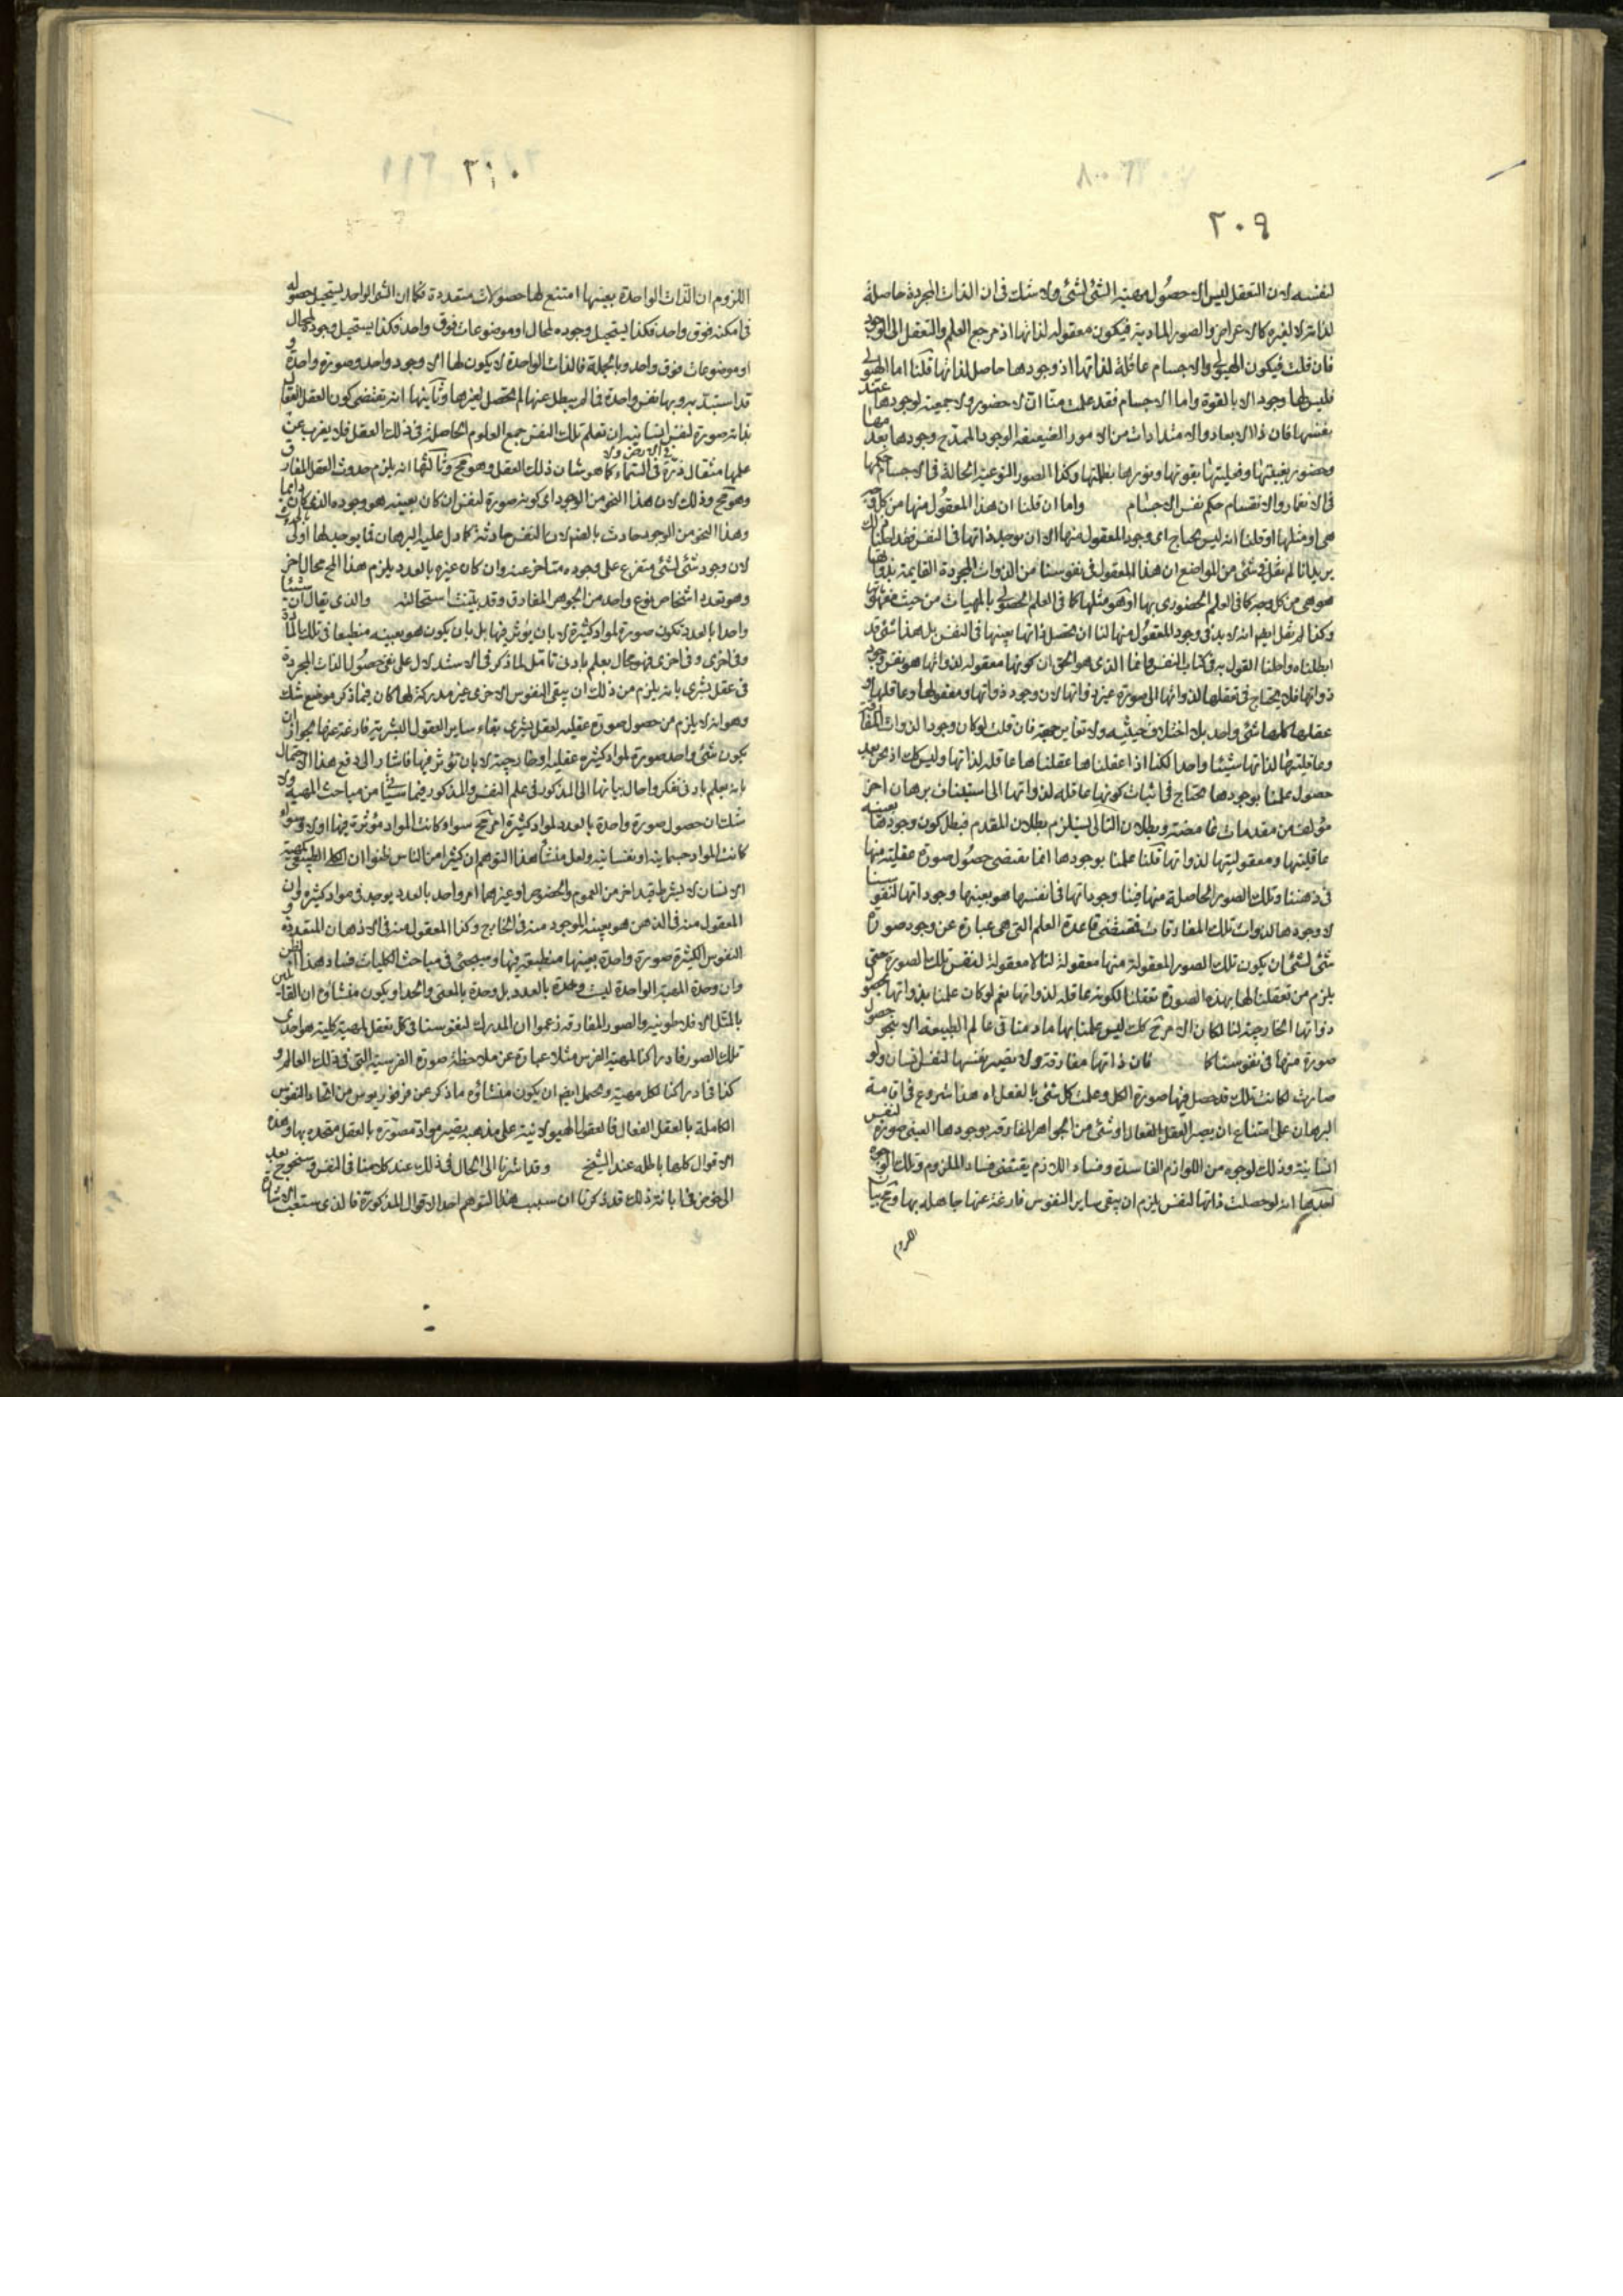 ٢٠٩
لنفسه لان التعقل ليس الا حصول مهية الشئ لشئ ولا شك فى ان الذات المجردة حاصلة
لذاته لا لغيره كالاعراض والصور المادية فيكون معقوله لذاتها اذ مرجع العلم والتعقل الى الوجود
فان قلت فيكون الهيولى والاجسام عاقلة لذاتها اذ وجودها حاصل لذاتها قلنا اما الهيولى
فليس لها وجود الا بالقوة واما الاجسام فقد علمت منا ان لا حضور ولا جمعية لوجودها عند
نفسها فان ذا الابعاد والامتدادات من الامور الضعيفة الوجود الممتزج وجودها بعدمها
وحضورها بغيبتها وفعليتها بقوتها ونورها بظلمتها وكذا الصور النوعية الحالة فى الاجسام حكمها
فى الانغمار والانقسام حكم نفس الاجسام واما ان قلنا ان هذا المعقول منها من كل وجه
هى او مثلها او قلنا انه ليس يحتاج اى وجود المعقول منها الا ان يوجد ذاتها فى النفس فقد احلنا
يريد انا لم نقل فى شئ من المواضع ان هذا المعقول فى نفوسنا من الذوات المجردة القايمة بذواتها
هو هى من كل وجه كما فى العلم الحضورى بها او هو مثلها كما فى العلم الحصولى بالمهيات من حيث
وكذا لم نقل ايضا انه لا بد فى وجود المعقول منها لنا ان تحصل ذاتها بعينها فى النفس بل هذا شئ قد
ابطلناه واحلنا القول به فى كتاب النفس واما الذى هو الحق ان كونها معقوله لذواتها هو نفس وجود
ذواتها فلا يحتاج فى تعقلها لذواتها الى صورة غير ذواتها لان وجود ذواتها ومعقولها وعاقلها و
عقلها كلها شئ واحد بلا اختلاف حيثيه ولا تغاير جهة فان قلت لو كان وجود الذوات المفارقة
وعاقليتها لذاتها شيئا واحدا لكنا اذا عقلناها عقلناها عاقله لذاتها وليس كك اذ نحن بعد
حصول علمنا بوجودها نحتاج فى اثبات كونها عاقله لذواتها الى استيناف برهان اخر
مؤلف من مقدمات غامضة وبطلان التالى يستلزم بطلان المقدم فبطل كون وجودها بعينه
عاقليتها ومعقوليتها لذواتها قلنا علمنا بوجودها انما يقتضى حصول صورة عقلية منها
فى ذهننا وتلك الصور الحاصلة منها فينا وجوداتها فى انفسها هو بعينها وجوداتها لنفوسنا
لا وجودها لذوات تلك المفارقات فمقتضى قاعدة العلم التى هى عبارة عن وجود صورة
شئ لشئ ان يكون تلك الصور المعقولة منها معقولة لنا لا معقولة لنفس تلك الصورة حتى
يلزم من تعقلنا لها بهذه الصورة تعقلنا لكونه عاقله لذواتها نعم لو كان علمنا بذواتها بحصول
ذواتها الخارجية لنا لكان الامر ح كك ليس علمنا بها ما دمنا فى عالم الطبيعة الا بنحو حصول
صورة منها فى نفوسنا كما فان ذاتها مفارقة ولا يصير نفسها لنفس انسان ولو
صارت لكانت تلك قد حصل فيها صورة الكل وعلمت كل شئ بالفعل اه هذا شروع فى اقامة
البرهان على امتناع ان يصير العقل الفعال او شئ من الجواهر المفارقة بوجودها العينى صورة لنفس
انسانية وذلك لوجوه من اللوازم الفاسدة وفساد اللازم يقتضى فساد الملزوم وتلك الوجوه
احدها انه لو حصلت ذاتها لنفس يلزم ان يبقى ساير النفوس فارغة عنها جاهله بها
اللزوم
٢١٠
اللزوم ان الذات الواحدة بعينها امتنع لها حصولات متعددة فكما ان الشئ الواحد يستحيل حصوله
فى امكنه فوق واحد فكذا يستحيل وجوده لمحال او موضوعات فوق واحد فكذا يستحيل وجود لمحال
او موضوعات فوق واحد وبالجملة فالذات الواحدة لا يكون لها الا وجود واحد وصورة واحدة و
بها نفس واحدة فما لم يبطل عنها لم تحصل لغيرها وثانيها انه يقتضى كون العقل الفعال
بذاته صورة لنفس انسانيه ان تعلم تلك النفس جميع العلوم الحاصلة فى ذلك العقل فلا يعزب عن
علمها مثقال ذرة فى الارض ولا فى السماء كما هو شان ذلك العقل وهو مح وثالثها انه يلزم حدوث العقل المفارق
وهو مح وذلك لان هذا النحو من الوجود اى كونه صورة لنفس ان كان بعينه هو وجوده الذى كان دايما
وهذا النحو من الوجود حادث بالضرورة لان النفس حادثة كما دل عليه البرهان فما يوجد لها اولى
لان وجود شئ لشئ متفرع على وجوده متاخر عنه وان كان غيره بالعدد يلزم هذا المح مح اخر
وهو تعدد اشخاص نوع واحد من الجوهر المفارق وقد بينت استحالته والذى يقال ان شيئا
واحدا بالعدد تكون صورة لمواد كثيرة لا بان يؤثر فيها بل بان يكون هو بعينه منطبعا فى تلك المادة
وفى اخرى وفى اخرى فهو محال يعلم بادنى تامل لما ذكر فى الاستدلال على نفى حصول الذات المجردة
فى عقل بشرى بانه يلزم من ذلك ان يبقى النفوس الاخرى غير مدركة لها كان فيما ذكر موضع شك
وهو انه لا يلزم من حصول صورة عقلية لعقل بشرى بقاء ساير العقول البشرية فارغة عنها لجواز ان
يكون شئ واحد صورة لمواد كثيرة عقلية او خارجية لا بان تؤثر فيها فاشار الى دفع هذا الاحتمال
بانه يعلم بادنى تفكر واحال بيانها الى المذكور فى علم النفس والمذكور فيما سيأتى من مباحث المهية ولا
شك ان حصول صورة واحدة بالعدد لمواد كثيرة امر مح سواء كانت المواد مؤثرة فيها او لا وسواء
كانت المواد جسمانية او نفسانيه ولعل منشأ هذا التوهم ان كثيرا من الناس ظنوا ان الكلى الطبيعى كمهية
الانسان لا بشرط قيد اخر من العموم والخصوص وغيرهما امر واحد بالعدد يوجد فى مواد كثيره وان
المعقول منه فى الذهن هو بعينه الموجود منه فى الخارج وكذا المعقول منه فى الاذهان المتعددة و
النفوس الكثيرة صورة واحدة بعينها منطبعة فيها وسيجئ فى مباحث الكليات فساد هذا الظن
وان وحدة المهية الواحدة ليست وحدة بالعدد بل وحدة بالمعنى والحد او يكون منشاؤه ان القائلين
بالمثل الافلاطونية والصور المفارقه زعموا ان المدرك لنفوسنا فى كل تعقل لمهية كلية هو احدى
تلك الصور فادراكنا لمهية الفرس مثلا عبارة عن ملاحظة صورة الفرسية التى فى ذلك العالم و
كذا فى ادراكنا لكل مهية ويحمل ايضا ان يكون منشاؤه ما ذكر عن فرفوريوس من اتحاد النفوس
الكاملة بالعقل الفعال فالعقول الهيولانية على مذهبه يصير مواد متصورة بالعقل متحده بها وهذه
الاقوال كلها باطله عند الشيخ وقد اشرنا الى الحال فى ذلك عند كلامنا فى النفس وسنخرج بعد
الى خوض فى ابانة ذلك قد ذكرنا ان سبب هذا التوهم احد الاقوال المذكورة فالذى